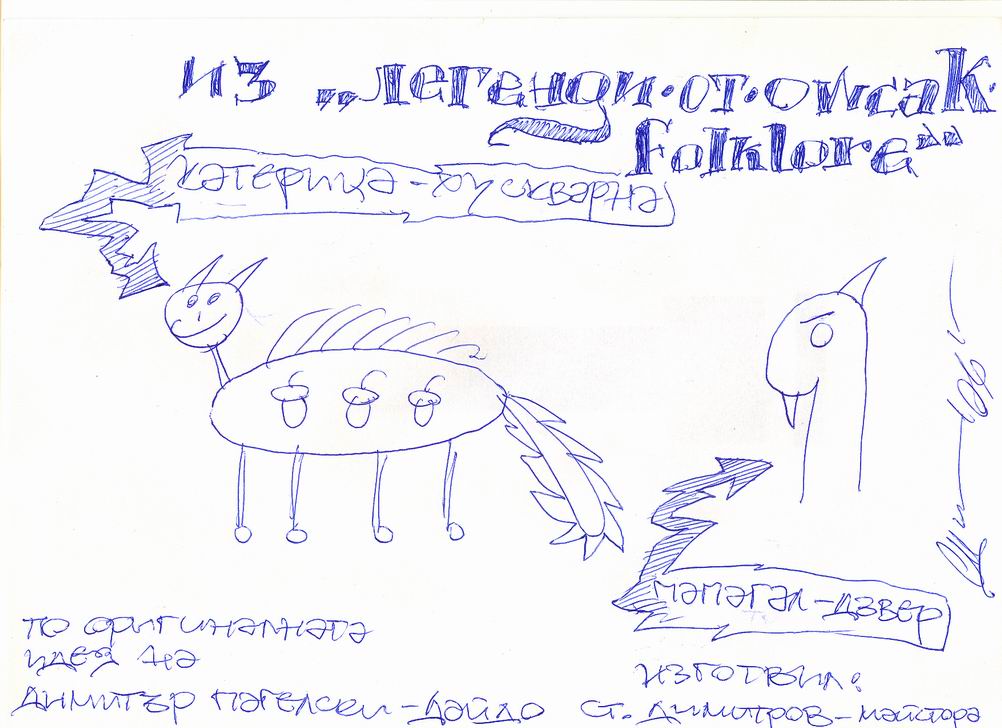 из „легенди·от·omcak·
folklore“
катерица-
мамагал-дзвер
по оригиналната
идея на
Димитър Пагелски-Дайдо
Изготвил:
Ст. Димитров-майстора